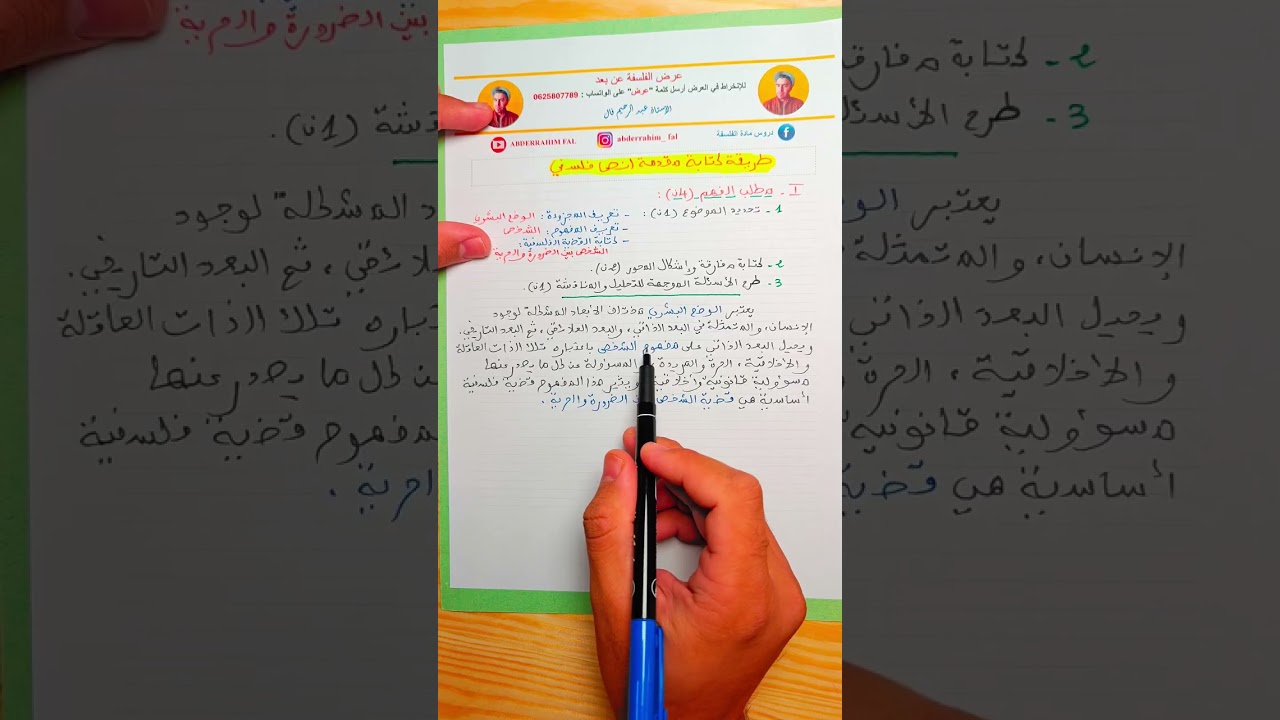 عرض الفلسفة عن بعد
للإنخراط في العرض أرسل كلمة "عرض" على الواتساب : 0625807789
الاستاذ عبد الرحيم فال
ABDERRAHIM FAL
abderrahim_fal
دروس مادة الفلسفة
طريقة كتابة مقدمة النص فلسفي
I - مطلب الفهم (4ن) :
1 - تحديد الموضوع (1ن) : - تعريف المجزوءة : الوضع البشري
- تعريف المفهوم : الشخص
- كتابة القضية الفلسفية :
الشخص بين الضرورة والحرية
2 - كتابة مفارقة وإشكال المحور (2ن).
3 - طرح الأسئلة الموجهة للتحليل والمناقشة (1ن).
يعتبر الوضع البشري مختلف الأبعاد المشكلة لوجود
الإنسان، والمتمثلة في البعد الذاتي، والبعد العلائقي، ثم البعد التاريخي.
ويحيل البعد الذاتي على مفهوم الشخص باعتباره تلك الذات العاقلة
والأخلاقية، الحرة والمريدة المسؤولة عن كل ما يصدر عنها
مسؤولية قانونية وأخلاقية ويثير هذا المفهوم قضية فلسفية
أساسية هي قضية الشخص الضرورة والحرية.